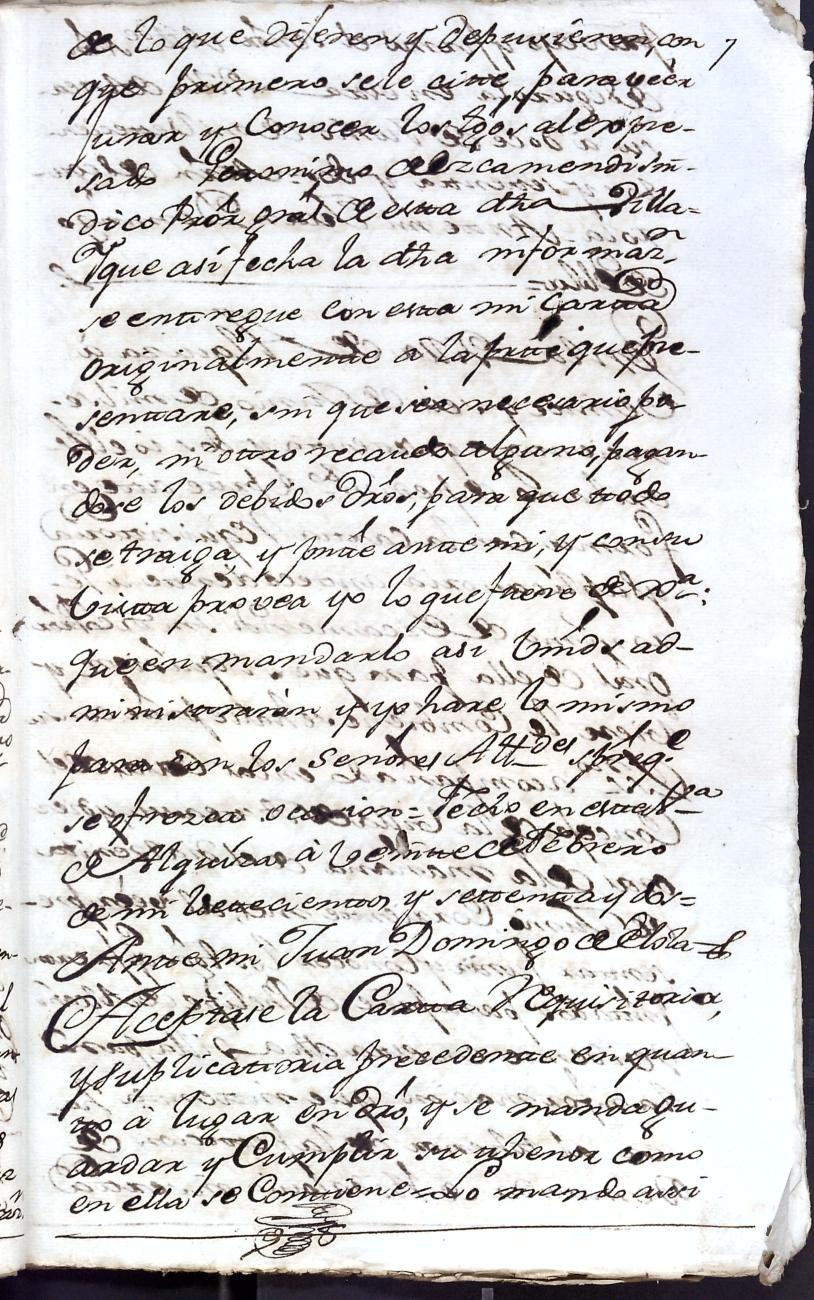 de lo que dijeren y depusieren, con 7
que primero se le cite para veer
jurar y Conocer los tgos al expre-
sado Geronimo de Ezcamendi sin-
dico Prõr grãl de esta dha Villa=
Y que asi fecha la dha informaz.n
se entregue con esta mi Carta
originalmente a la pãrte que pre-
sentare, sin que sea necesario po-
der, ni otro recaudo alguno, pagan-
dose los debidos drõs, para que todo
se traiga, y pnte ante mi, y con su
Vista provea yo lo que fuere de
que en mandarlo asi Vmds ad-
ministraran y yo hare lo mismo
para con los Señores Alldes spre q.e
se ofrezca ocasion = fecho en esta V.a
de Alquiza à Veinte de Febrero
de mil Setecientos y settenta y dos=
Ante mi Juan Domingo de
Aceptase la Carta Requisitoria,
y suplicattoria precedente en quan-
to à lugar en drõ, y se manda gu-
ardar y Cumplir su thenor como
en ella se Contiene= lo mando assi